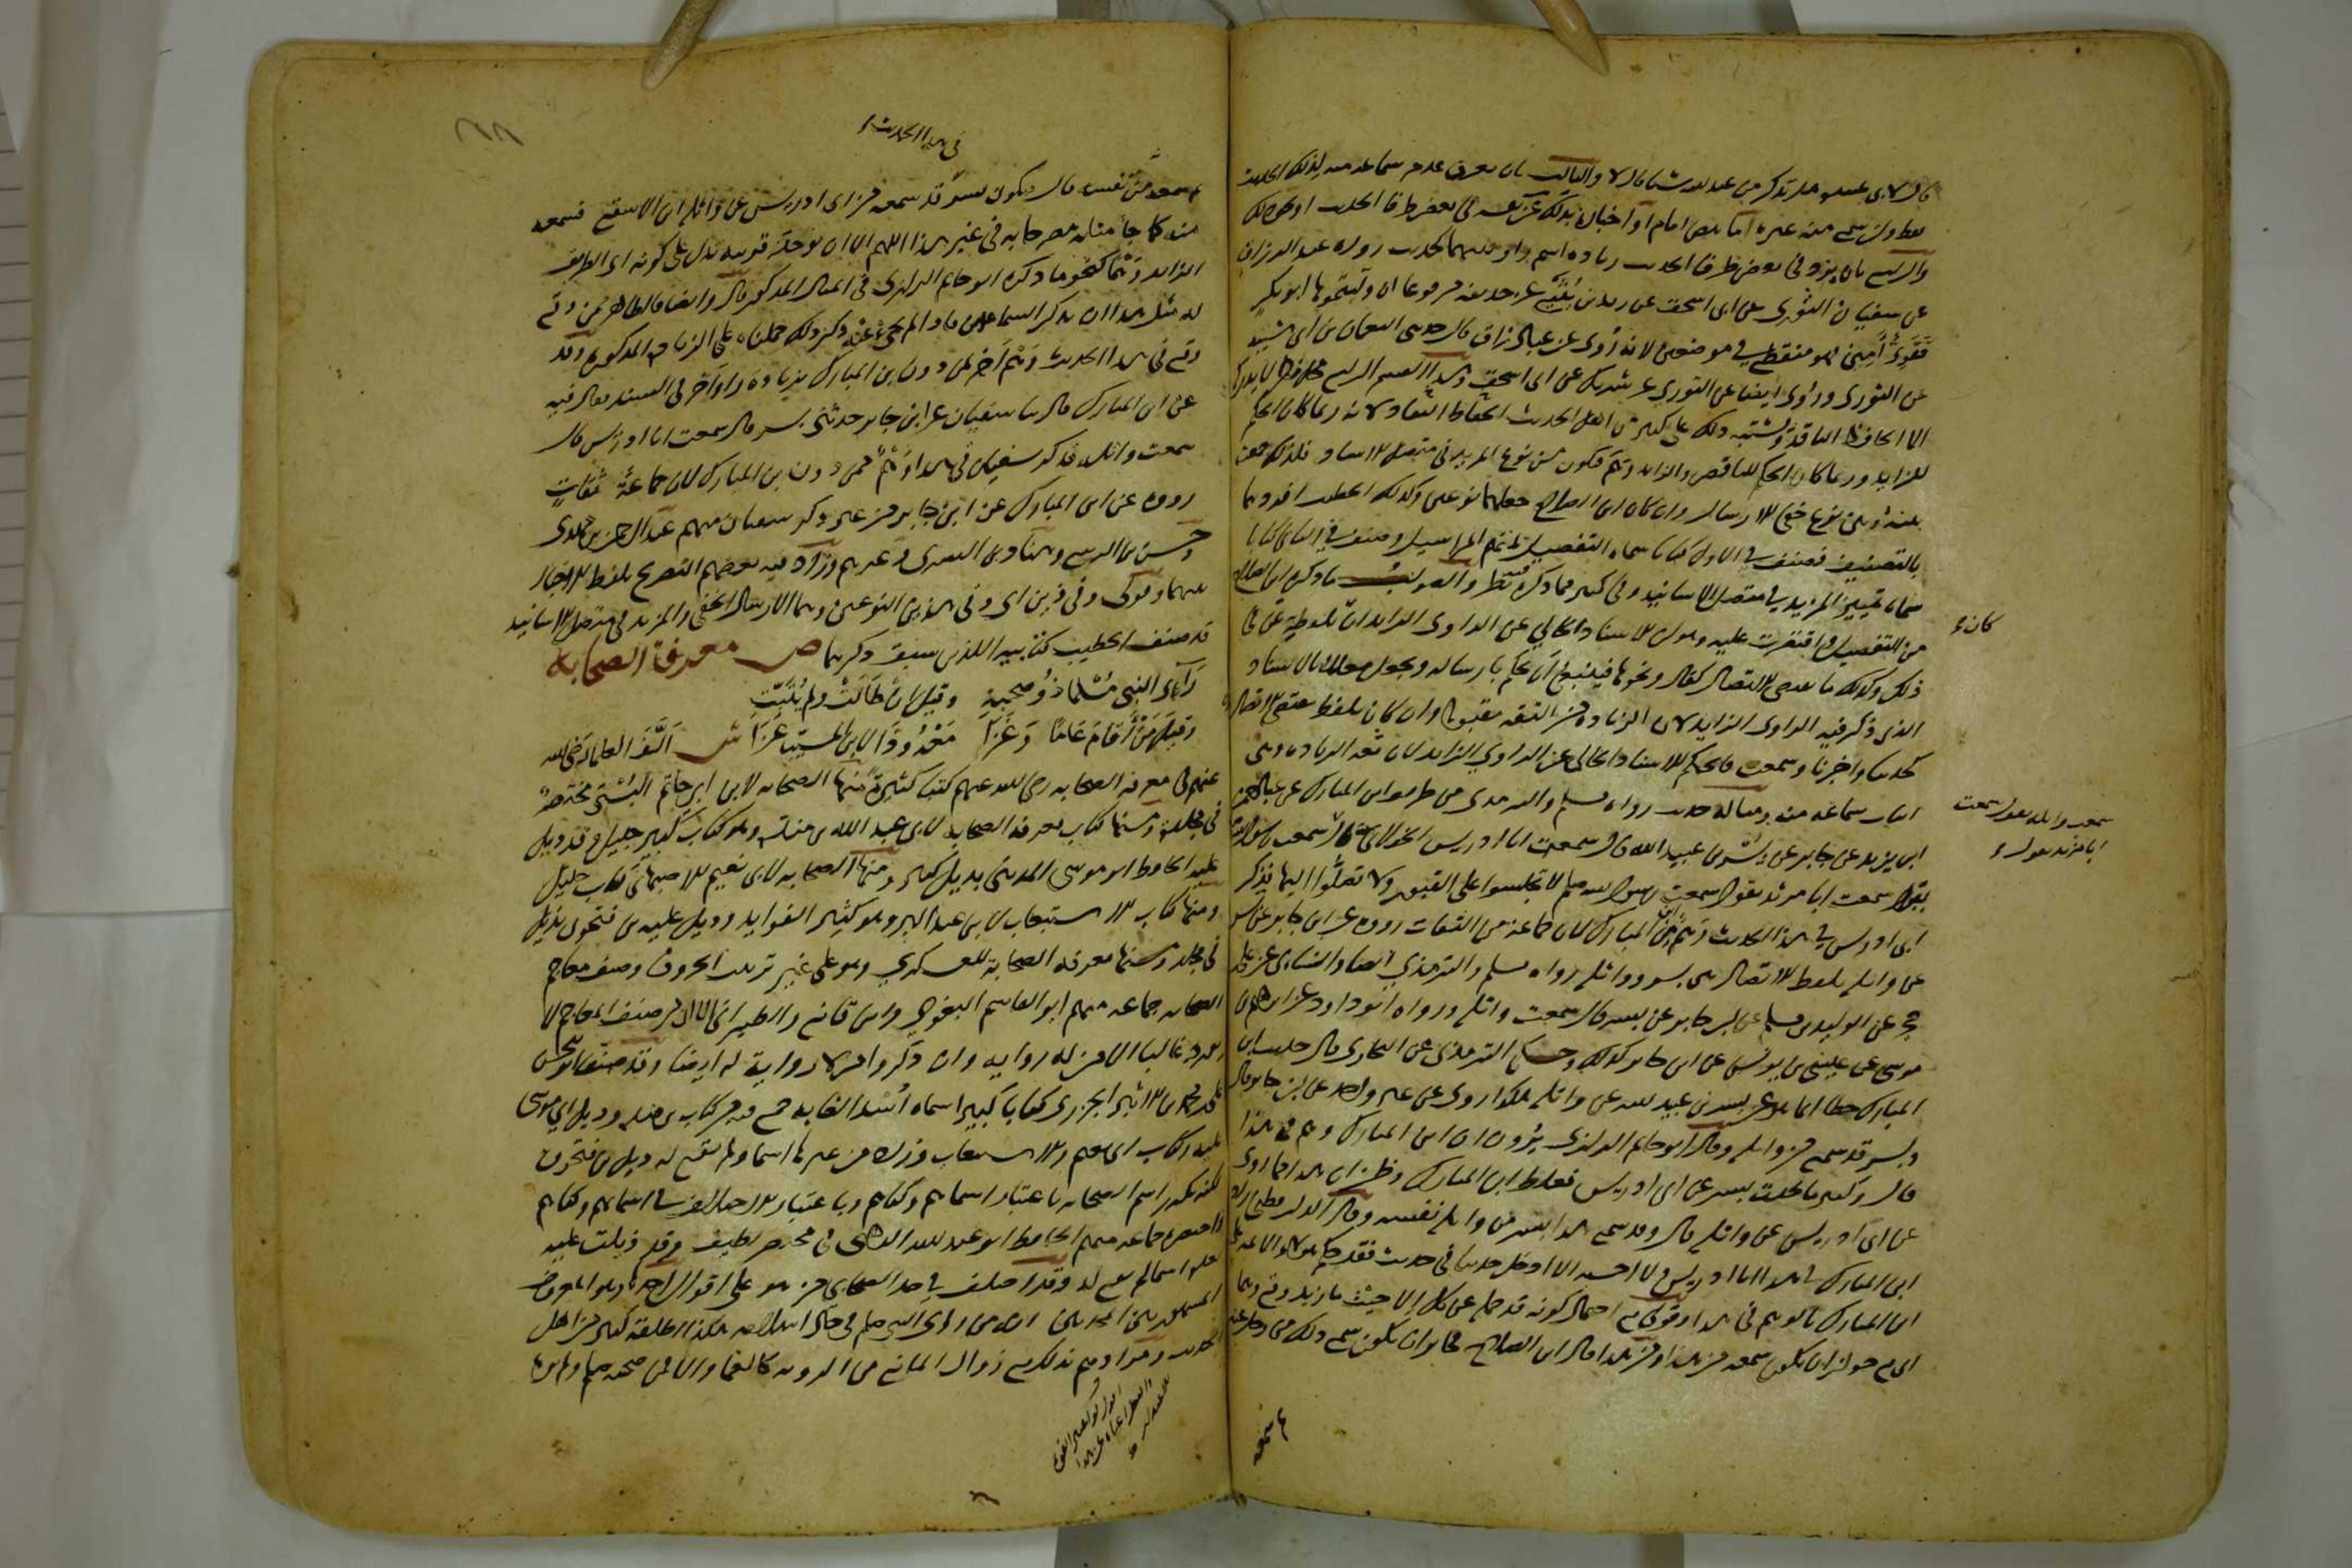 قال لابى عبيده هل تذكر من عبد الله شيا قال لا والثالث بان يعرف عدم سماعه منه لذلك الحديث
فقط وان سمع منه غيره اما بنص امام او اخباره بذلك عن نفسه فى بعض طرق الحديث او نحو ذلك
والرابع بان يرد فى بعض طرق الحديث زياده اسم راو بينهما كحديث رواه عبد الرزاق
عن سفيان الثورى عن ابى اسحق عن زيد بن يُثَيْع عن حذيفه مرفوعا ان وليتموها ابو بكر
فَقَوِىٌّ أَمِينٌ فهو منقطع فى موضعين لانه رُوى عن عبد الرزاق قال حدثنى النعمان بن ابى شيبه
عن الثورى ورُوى ايضا عن الثورى عن شريك عن ابى اسحق وهذا القسم الرابع محل نظر لا يدركه
الا الحافظ الناقد ويشتبه ذلك على كثير من اهل الحديث الحفاظ النقاد لانه ربما كان الحكم
للزايد وربما كان الحكم للناقص والزايد وَهْم فيكون من نوع المزيد فى متصل الاسناد فلذلك جمعت
بينه وبين نوع خفى الارسال وان كان ابن الصلاح جعلهما نوعين وكذلك الخطيب افردهما
بالتصنيف فصنف فى الاول كتابا سماه التفصيل لمبهم المراسيل وصنف فى الثانى كتابا
سماه تمييز المزيد فى متصل الاسانيد وفى كثير مما ذكره فيه نظر والصواب ما ذكره ابن الصلاح
من التفصيل واقتصرت عليه وهو ان الاسناد الخالى عن الراوى الزايد ان كان بلفظ عن فى
ذلك وكذلك ما لا يقتضى الاتصال كقال ونحوها فينبغى ان يحكم بارساله ويجعل معللا بالاسناد
الذى ذُكر فيه الراوى الزايد لان الزياده من الثقه مقبوله وان كان بلفظ يقتضى الاتصال
كحدثنا واخبرنا وسمعت فالحكم للاسناد الخالى عن الراوى الزايد لان معه الزياده وهى
اثبات سماعه منه ومثاله حديث رواه مسلم والترمذى من طريق ابن المبارك عن عبد الرحمن
ابن يزيد بن جابر عن بُسْر بن عبيد الله قال سمعت ابا ادريس الخولانى قال سمعت واثله
يقول سمعت ابا مرثد يقول سمعت رسول الله صلعم لا تجلسوا على القبور ولا تصلُّوا اليها فذكر
ابى ادريس فى هذا الحديث وَهْم من ابن المبارك لان جماعة من الثقات رووه عن ابن جابر عن بسر
عن واثله بلفظ الاتصال بين بسر وواثله رواه مسلم والترمذى ايضا والنسائى عن على بن
حجر عن الوليد بن مسلم عن ابن جابر عن بسر قال سمعت واثله ورواه ابو داود عن ابراهيم بن
موسى عن عيسى بن يونس عن ابن جابر كذلك وحكى الترمذى عن البخارى قال حديث ابن
المبارك خطا انما هو عن بسر بن عبيد الله عن واثله هكذا روى عن غير واحد عن ابن جابر قال
وبسر قد سمع من واثله وقال ابو حاتم الرازى يرون ان ابن المبارك وهم فى هذا
قال وكثيرا ما يحدث بسر عن ابى ادريس فغلط ابن المبارك وظن ان هذا مما روى
عن ابى ادريس عن واثله قال وقد سمع هذا بسر من واثله نفسه وقال الدارقطنى زاد
ابن المبارك فى هذا ابا ادريس ولا احسبه الا ادخل حديثا فى حديث فقد حكم هؤلاء الائمه على
ابن المبارك بالوهم فى هذا وقولى مع احتمال كونه قد حمله عن كل الا حيث ما زيد وقع وهما
اى مع جواز ان يكون سمعه من هذا ومن هذا قال ابن الصلاح فجايز ان يكون سمع ذلك من رجل عنه
كان
سمعت واثله يقول سمعت
ابا مرثد يقول
ثم سمعه
فى هذا الحديث
ثم سمعه من نفسه قال فيكون بسر قد سمعه من ابى ادريس عن واثله بن الاسقع فسمعه
منه كما جا مثله مصرحا به فى غير هذا اللهم الا ان توجد قرينه تدل على كونه اى الطريق
الزايد وَهْمًا كنحو ما ذكره ابو حاتم الرازى فى المثال المذكور قال وايضا فالظاهر ممن وقع
له مثل هذا ان يذكر السماعين فاذا لم يجئ عنه ذكر ذلك حملناه على الزياده المذكوره وقد
وقع فى هذا الحديث وَهْم آخر لمن دون ابن المبارك بزياده راو آخر فى السند فقال فيه
عن ابن المبارك قال ثنا سفيان عن ابن جابر حدثنى بسر قال سمعت ابا ادريس قال
سمعت واثله فذكر سفيان فى هذا وَهْمٌ ممن دون ابن المبارك لان جماعةً ثقاتٍ
رووه عن ابن المبارك عن ابن جابر من غير ذكر سفيان منهم عبد الرحمن بن مهدى
وحسن بن الربيع وهناد بن السرى وغيرهم وزاد فيه بعضهم التصريح بلفظ الاخبار
بينهما وقولى وفى ذين اى وفى هذين النوعين وهما الارسال الخفى والمزيد فى متصل الاسانيد
قد صنف الخطيب كتابيه اللذين سبق ذكرهما ص معرفة الصحابه
رَآءِى النبى مُسْلِمًا ذُو صحبةٍ وقيل انْ طَالَتْ ولم يُثَبَّتِ
وقيلَ مَنْ أَقَامَ عَامًا وَغَزَا مَعْهُ وَذَا لابن المُسَيِّبِ عَزَا ش اَلَّفَ العلما رضى الله
عنهم فى معرفه الصحابه رضى الله عنهم كتبا كثيرةً منها الصحابه لابن ابى حاتم البُسْتى مختصرٌ
فى مجلده ومنها كتاب معرفه الصحابه لابى عبد الله بن منده وهو كتاب كبير جليل وقد ذيل
عليه الحافظ ابو موسى المدينى بذيل كبير ومنها الصحابه لابى نعيم الاصبهانى كتاب جليل
ومنها كتاب الاستيعاب لابن عبد البر وهو كثير الفوايد وذيل عليه ابن فتحون بذيل
فى مجلد ومنها معرفه الصحابة للعسكرى وهو على غير ترتيب الحروف وصنف معاجم
الصحابه جماعه منهم ابو القاسم البغوى وابن قانع والطبرانى الا ان من صنف المعاجم لا
يورد غالبا الا من له روايه وان ذكروا من لا رواية له ايضا وقد صنف ابو الحسن
على بن محمد بن الاثير الجزرى كتابا كبيرا سماه أُسْد الغابه جمع فيه بين كتاب ابن منده وذيل ابى موسى
عليه وكتاب ابى نعيم والاستيعاب وزاد من غيرها اسما ولم يقع له ذيل ابن فتحون
لكنه يكرر اسم الصحابه باعتبار اسمايهم وكناهم وباعتبار الاختلاف فى اسمايهم وكناهم
واختصره جماعه منهم الحافظ ابو عبد الله الذهبى فى مختصر لطيف وقد ذيلت عليه
بعده اسما لم تقع له وقد اختلف فى حد الصحابى من هو على اقوال احدها وهو المعروف
المشهور بين المحدثين انه من رأى النبى صلعم فى حال اسلامه هكذا اطلقه كثير من اهل
الحديث ومرادهم بذلك مع زوال المانع من الرويه كالعمى والا فمن صحبه صلعم ولم يره